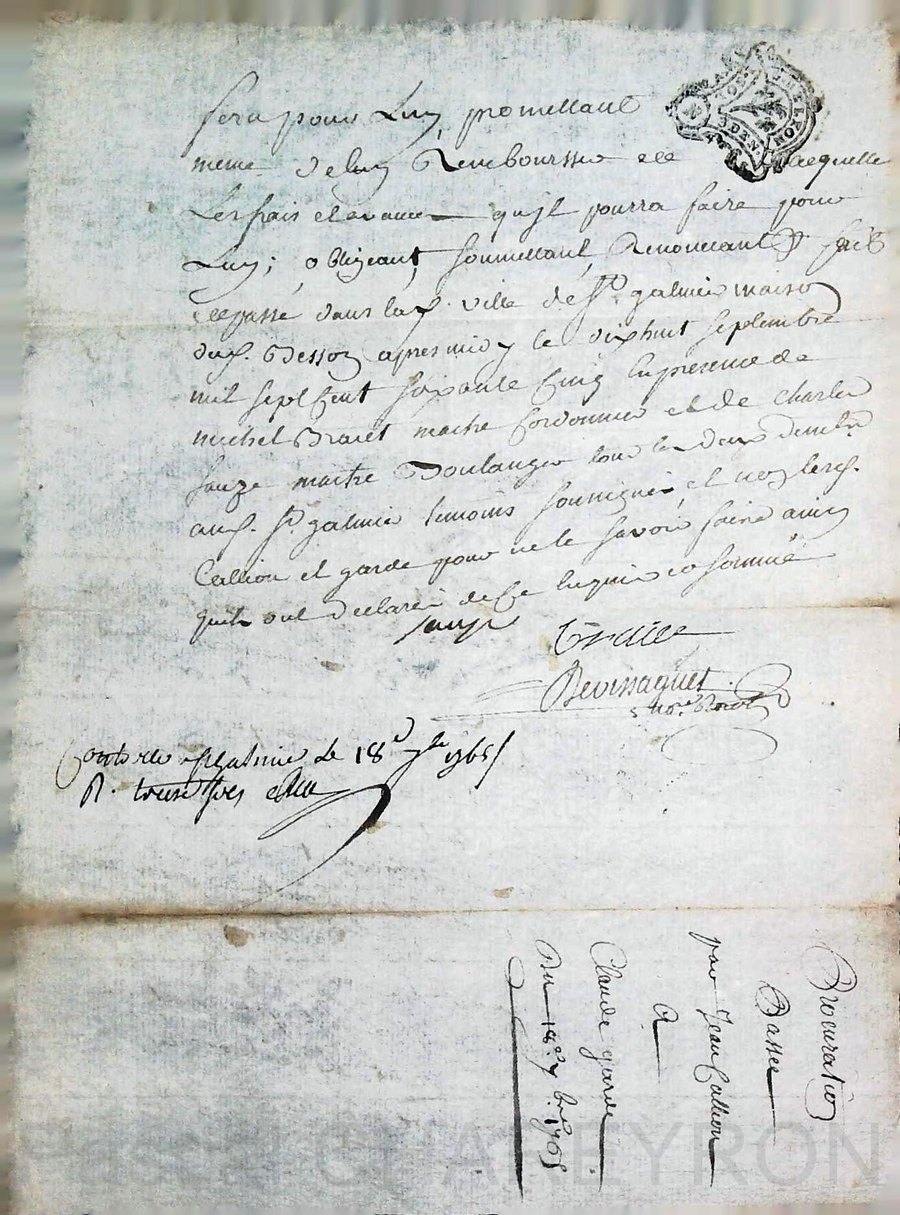 fera pour Luy, promettant
meme de luy Rembourser
Les frais et avance quyl pourra faire pour
Luy; obligeant, soumettant, Renoncant &c fait
et passé dans lad. ville de St galmier maison
dud. Besson apres midy le dixhuit septembre
mil sept Cent soixante Cinq En presence de
michel maitre Cordonnier et de Charle
sauze maitre Boulanger tous les deux
aud. St galmier temoins soussignés, et non lesd.
Callion et garde pour ne le savoir faire ainsy
quils ont declaré de Ce Enquis
sauze
Devissaguet
no.re Royal
Controlé a St galmie le 18e 7bre 1765
R. treize sols
Procuration
Passée
par Jean Callion
A
Claude garde
Du 18e 7bre 1765
Pascal CHAREYRON